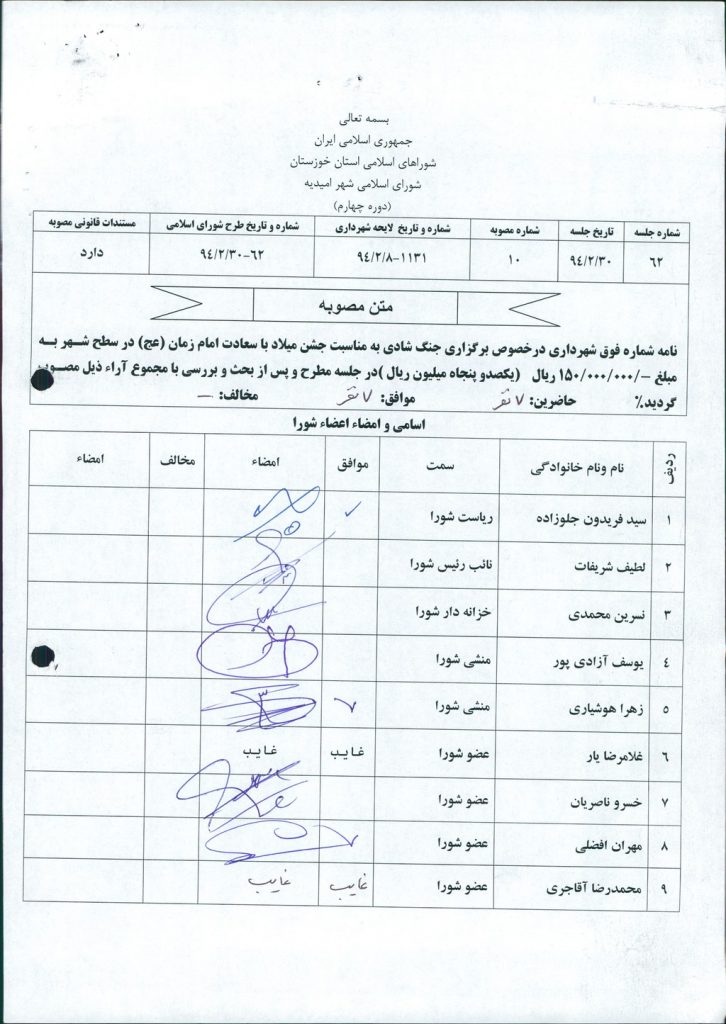 بسمه تعالی
جمهوری اسلامی ایران
شوراهای اسلامی استان خوزستان
شورای اسلامی شهر امیدیه
(دوره چهارم)
شماره جلسه تاریخ جلسه شماره مصوبه شماره و تاریخ لایحه شهرداری شماره و تاریخ طرح شورای اسلامی مستندات قانونی مصوبه
۶۲ ۹٤/۲/۳۰ ۱۰ ۹٤/۲/۸-۱۱۳۱ ۹٤/۲/۳۰-۶۲ دارد
متن مصوبه
نامه شماره فوق شهرداری درخصوص برگزاری جنگ شادی به مناسبت جشن میلاد با سعادت امام زمان (عج) در سطح شهر به
مبلغ -/۱۵۰/۰۰۰/۰۰۰ ریال (یکصدو پنجاه میلیون ریال )در جلسه مطرح و پس از بحث و بررسی با مجموع آراء ذیل مصوب
گردید.% حاضرین: ۷ نفر موافق: ۷ نفر مخالف: —
اسامی و امضاء اعضاء شورا
ردیف نام ونام خانوادگی سمت موافق امضاء مخالف امضاء
۱ سید فریدون جلوزاده ریاست شورا
۲ لطیف شریفات نائب رئیس شورا
۳ نسرین محمدی خزانه دار شورا
٤ یوسف آزادی پور منشی شورا
۵ زهرا هوشیاری منشی شورا
۶ غلامرضا یار عضو شورا غایب غایب
۷ خسرو ناصریان عضو شورا
۸ مهران افضلی عضو شورا
۹ محمدرضا آقاجری عضو شورا غایب غایب